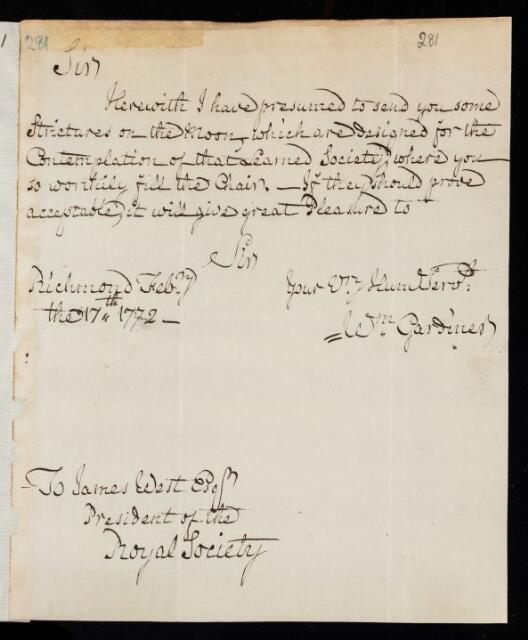 281 281
Sir
Herewith I have presumed to send you some
Strictures on the Moon, which are designed for the
Contemplation of that Learned Society, where you
so worthily fill the Chair. — If they should prove
acceptable, it will give great Pleasure to
Sir
Richmond Feb.ry Your V.ry Hum Serv.t
the 17th 1772 — Wm Gardiner
To James West Esqr
President of the
Royal Society